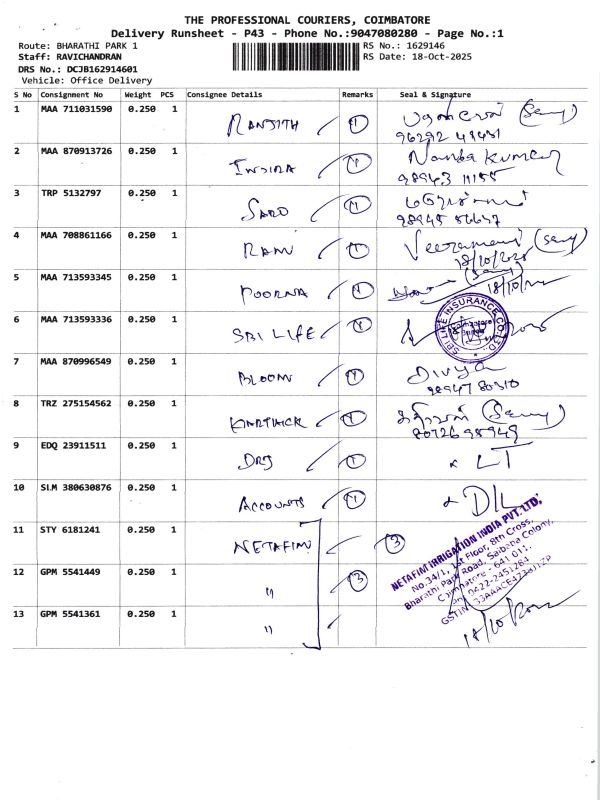 THE PROFESSIONAL COURIERS, COIMBATORE
Delivery Runsheet - P43 - Phone No.:9047080280 - Page No.:1
Route: BHARATHI PARK 1
RS No.: 1629146
Staff: RAVICHANDRAN
RS Date: 18-Oct-2025
DRS No.: DCJB162914601
Vehicle: Office Delivery
S No Consignment No Weight PCS Consignee Details Remarks Seal & Signature
1 MAA 711031590 0.250 1 RANJITH 1
2 MAA 870913726 0.250 1 INDIRA 1 Nanda Kumar
3 TRP 5132797 0.250 1 SARO 1
4 MAA 708861166 0.250 1 RAM 1 Veeramani
18/10/2025
5 MAA 713593345 0.250 1 POORNA 1
6 MAA 713593336 0.250 1 SBI LIFE 1 SBI LIFE INSURANCE CO. LTD.
Coimbatore
7 MAA 870996549 0.250 1 BLOOM 1 Divya
98947 80510
8 TRZ 275154562 0.250 1 KARTHICK 1
80726 98949
9 EDQ 23911511 0.250 1 1 LT
10 SLM 380630876 0.250 1 ACCOUNTS 1 DIL
11 STY 6181241 0.250 1 NETAFIM 3
12 GPM 5541449 0.250 1 " 3
13 GPM 5541361 0.250 1 "
NETAFIM IRRIGATION INDIA PVT. LTD,
No.34/1, 1st Floor, 8th Cross,
Bharathi Park Road, Saibaba Colony,
Coimbatore - 641 011.
0422-2451284